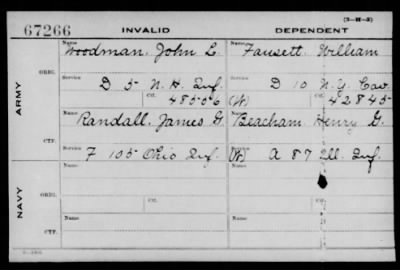 (3-H-3)
67266 INVALID DEPENDENT
Name Woodman, John L. Name Fausett, William
ORIG.
Service D 5 N. H. Inf. Service D 10 N. Y. Cav.
Ctf. 48556 (W) Ctf. 42845
ARMY
Name Randall, James G. Name Beacham, Henry G.
CTF.
Service F 105 Ohio Inf. (W) Service A 87 Ill. Inf.
ORIG.
Ctf. Ctf.
NAVY
Name Name
CTF.
Service Service